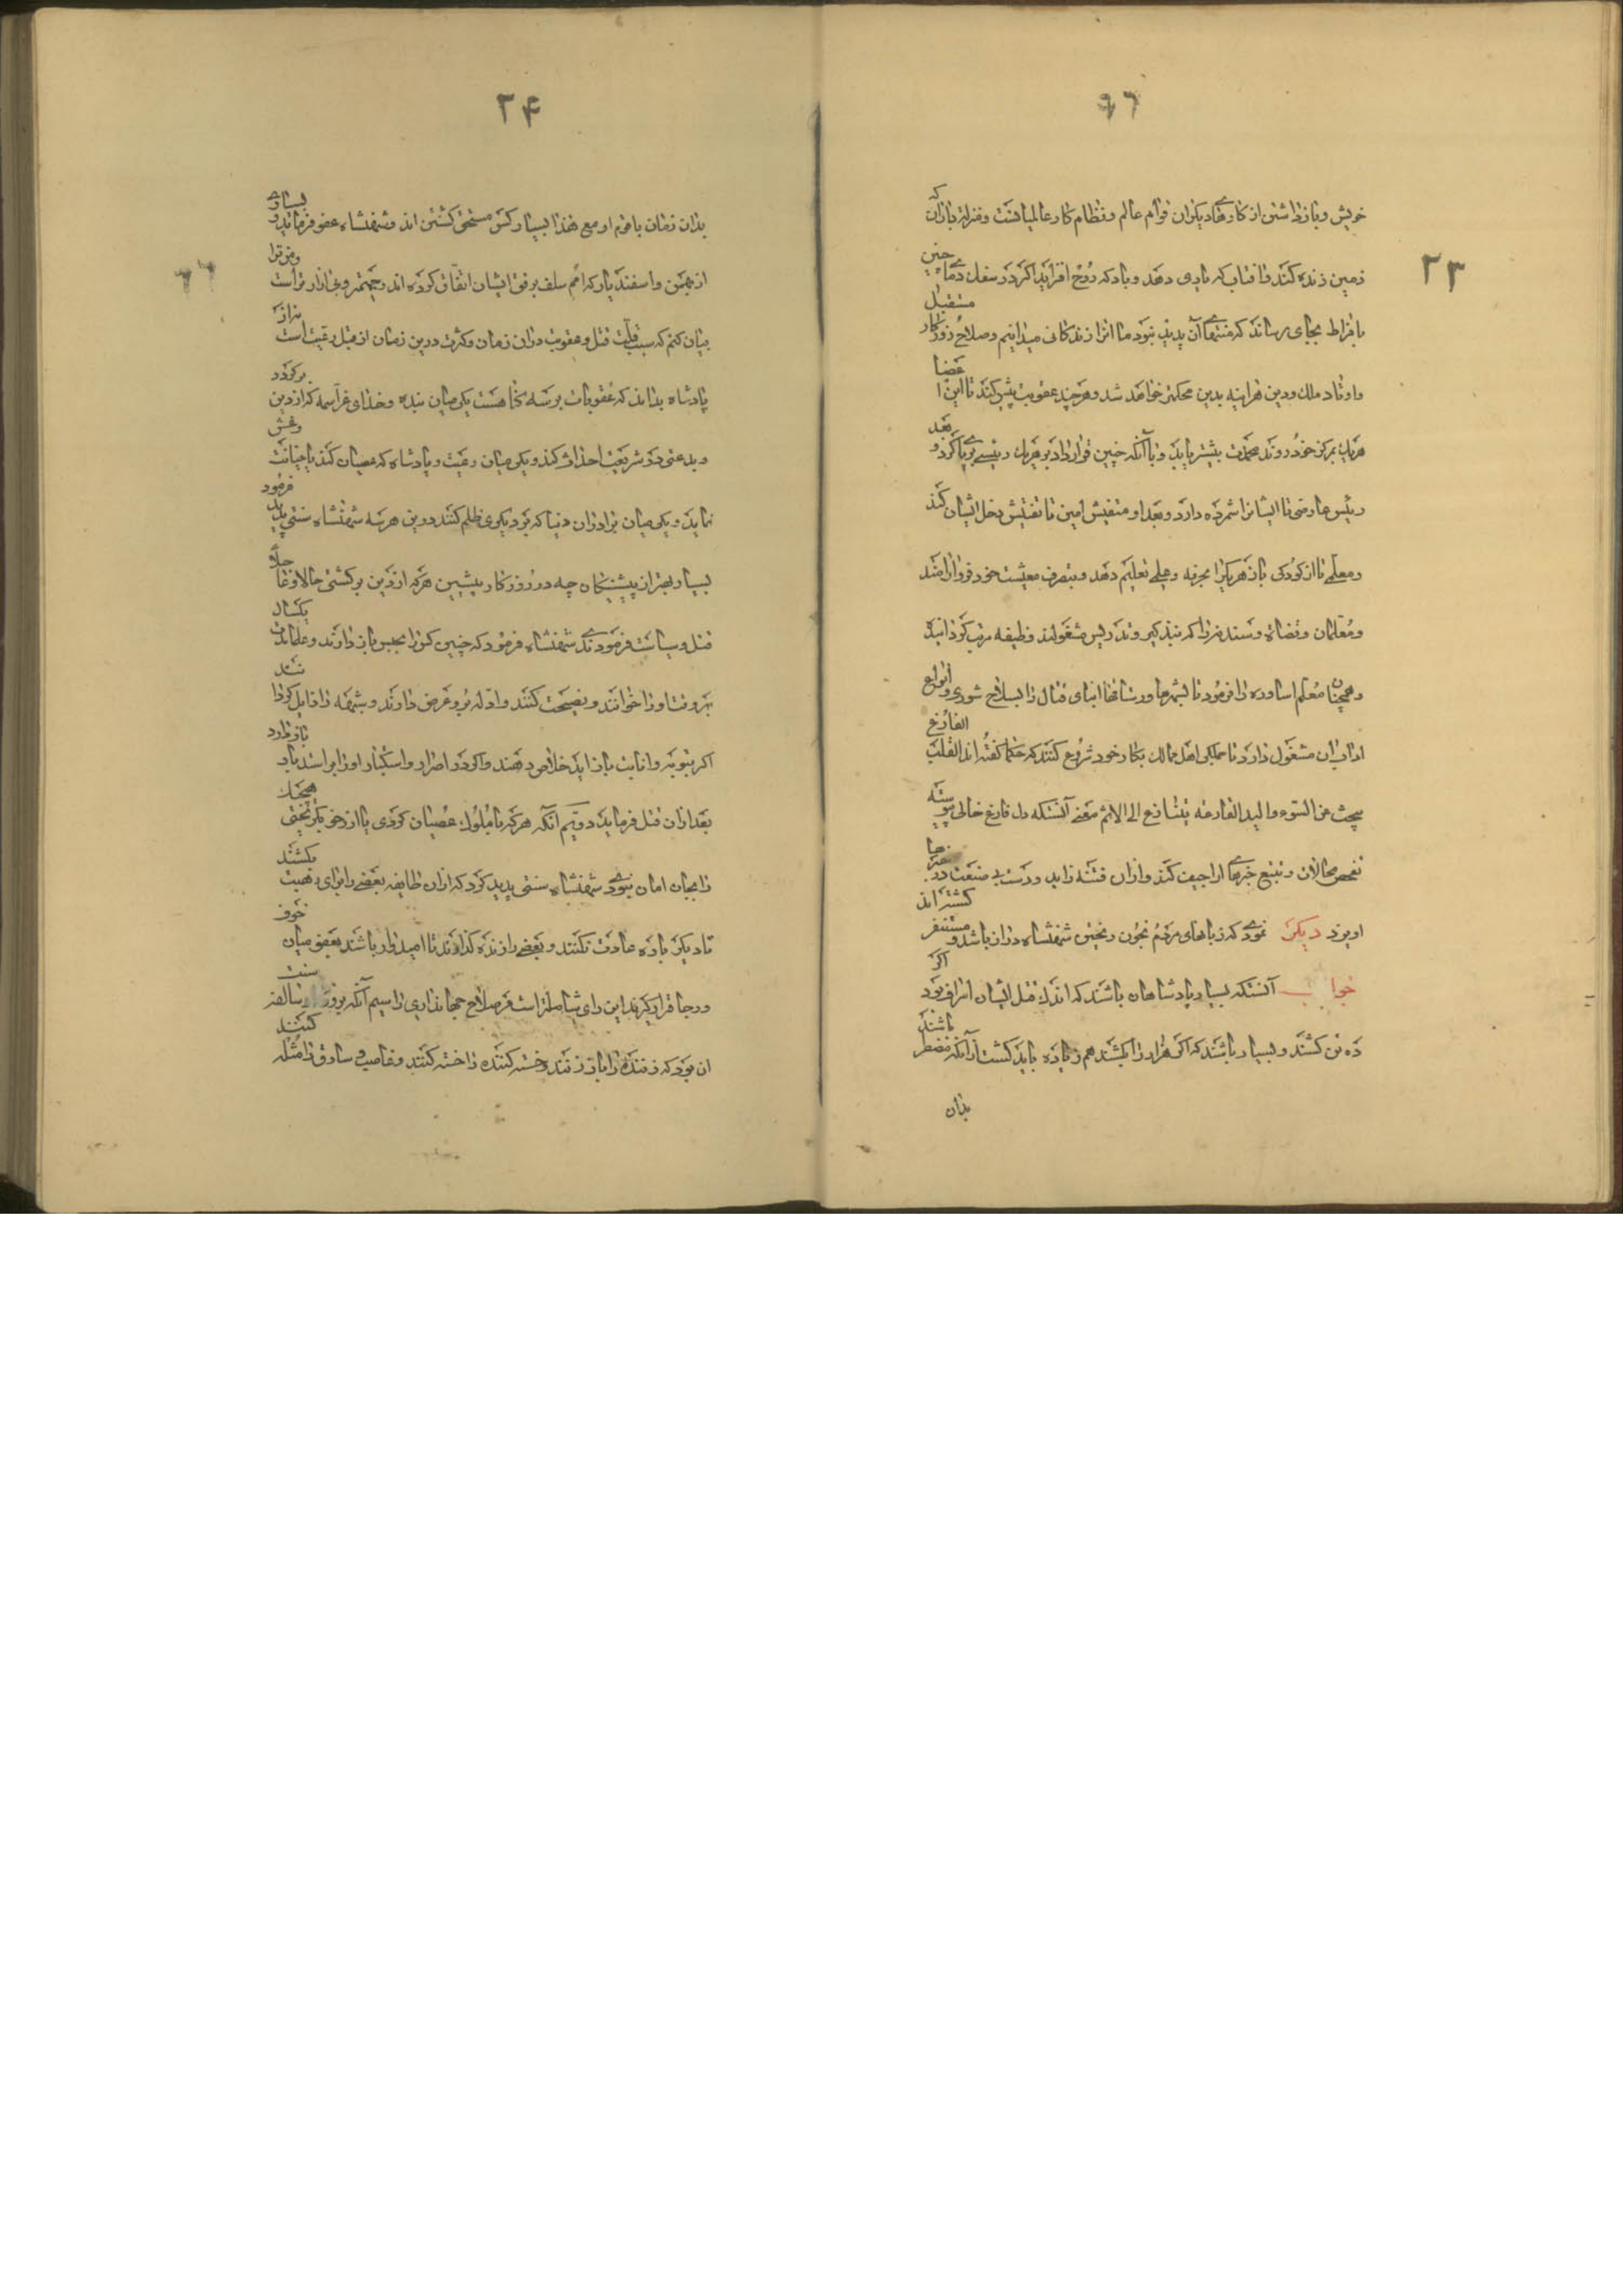 ۹۶
۲۳
خویش و بازداشتن از کارهای دیگران قوام عالم و نظام کار عالمیانست و بمنزلت بارانکه
زمین زنده کند و آفتاب که یاری دهد و باد که روح افزاید اگر در سفك دماء چنین
بافراط بجای رساند که منتهای آن پدید نبود ما آنرا زندگانی میدانیم و صلاح که در روزکار مستقبل
و اوتاد ملك و دین هرآینه بدین محکمتر خواهد شد و هرچند عقوبت بیش کند تا این اعضا
هریك بمرکز خود روند محمدت بیشتر یابد و با آنکه چنین قرار داد بر هریك رئیسی برپا کرد و بعد
رئیس عارضی تا ایشانرا شمرده دارد و بعد او مفتش امین تا تفتیش دخل ایشان کند
و معلمی تا از کودکی باز هریکرا بحرفه و عملی تعلیم دهد و بتصرف معیشت خود فرو آرامند
و معلمان و قضاة و سدنه را که بتذکیر و تدریس مشغولند وظیفه مرتب گردانید
و همچنان معلم اساوره را فرمود تا بشهرها و رستاقها ابنای قتال را بسلاح شوری و انواع
آداب آن مشغول دارد تا جملگی اهل ممالك بکار خود شروع کنند که حکما گفته‌اند القلب الفارغ
یبحث عن السوء و الید الفارغة ینازع الی الاثم معنی آنستکه دل فارغ خالی پیوسته
تفحص محالات و تتبع خبرهای اراجیف کند و از آن فتنه زاید و دست بی صنعت در بزها
آویزد دیگر نمودی که زبانهای مردم بخون ریختن شهنشاه دراز باشد و مستنفر گشته‌اند
جواب آنستکه بسیار پادشاهان باشند که اندك قتل ایشان اسراف بود اگر
ده تن کشند و بسیار باشند که اگر هزار را بکشند هم زیاده باید کشت از آنکه مضطر باشند
بدان
۲۴
۶۶
بدان زمان با قوم او مع هذا بسیار کس مستحق کشتن‌اند و شهنشاه عفو فرماید و بسیاری
از بهمن و اسفندیار که امم سلف برفق ایشان اتفاق کرده‌اند رحیمتر و بی آزارتر است و من ترا
بیان کنم که سبب قلت قتل و عقوبت در آن زمان و کثرت درین زمان از قبل رعیت است نه از
پادشاه بداند که عقوبات بر سه گناهست یکی میان بنده و خدای عز اسمه که از دین برگردد
و بدعتی در شریعت احداث کند و یکی میان رعیت و پادشاه که عصیان کند یا خیانت و غش
نماید و یکی میان برادران دنیا که بر دیگری ظلم کنند درین هر سه شهنشاه سنتی پدید فرمود
بسیار بهتر از پیشینگان چه در روزگار پیشین هرکه از دین برگشتی حالا عاجلا
قتل و سیاست فرمودندی شهنشاه فرمود که چنین کس را بحبس باز دارند و علما مدت یکسال
بهر وقت او را خوانند و نصیحت کنند و ادله برو عرض دارند و شبهه را زایل گردانند
اگر بتوبه و انابت باز آید خلاص دهند و اگر در اصرار و استکبار او را بر استدبار باز دارد
بعد از آن قتل فرماید دویم آنکه هرکه با ملوك عصیان کردی یا از زحف بگریختی هیچیك
را بجان امان نبودی شهنشاه سنتی پدید کرد که از آن طایفه بعضی را برای رهبت بکشند
تا دیگری یاره عادت نکنند و بعضی را زنده گذارند تا امیدوار باشند بعفو میان خوف
و رجا قرار گیرند این رای شاملتر است مر صلاح جهانداری را سیم آنکه بروزگار سالفه سنت
آن بود که زننده را باز زنند و خسته کننده را خسته کنند و غاصب و سارق را مثله کنند